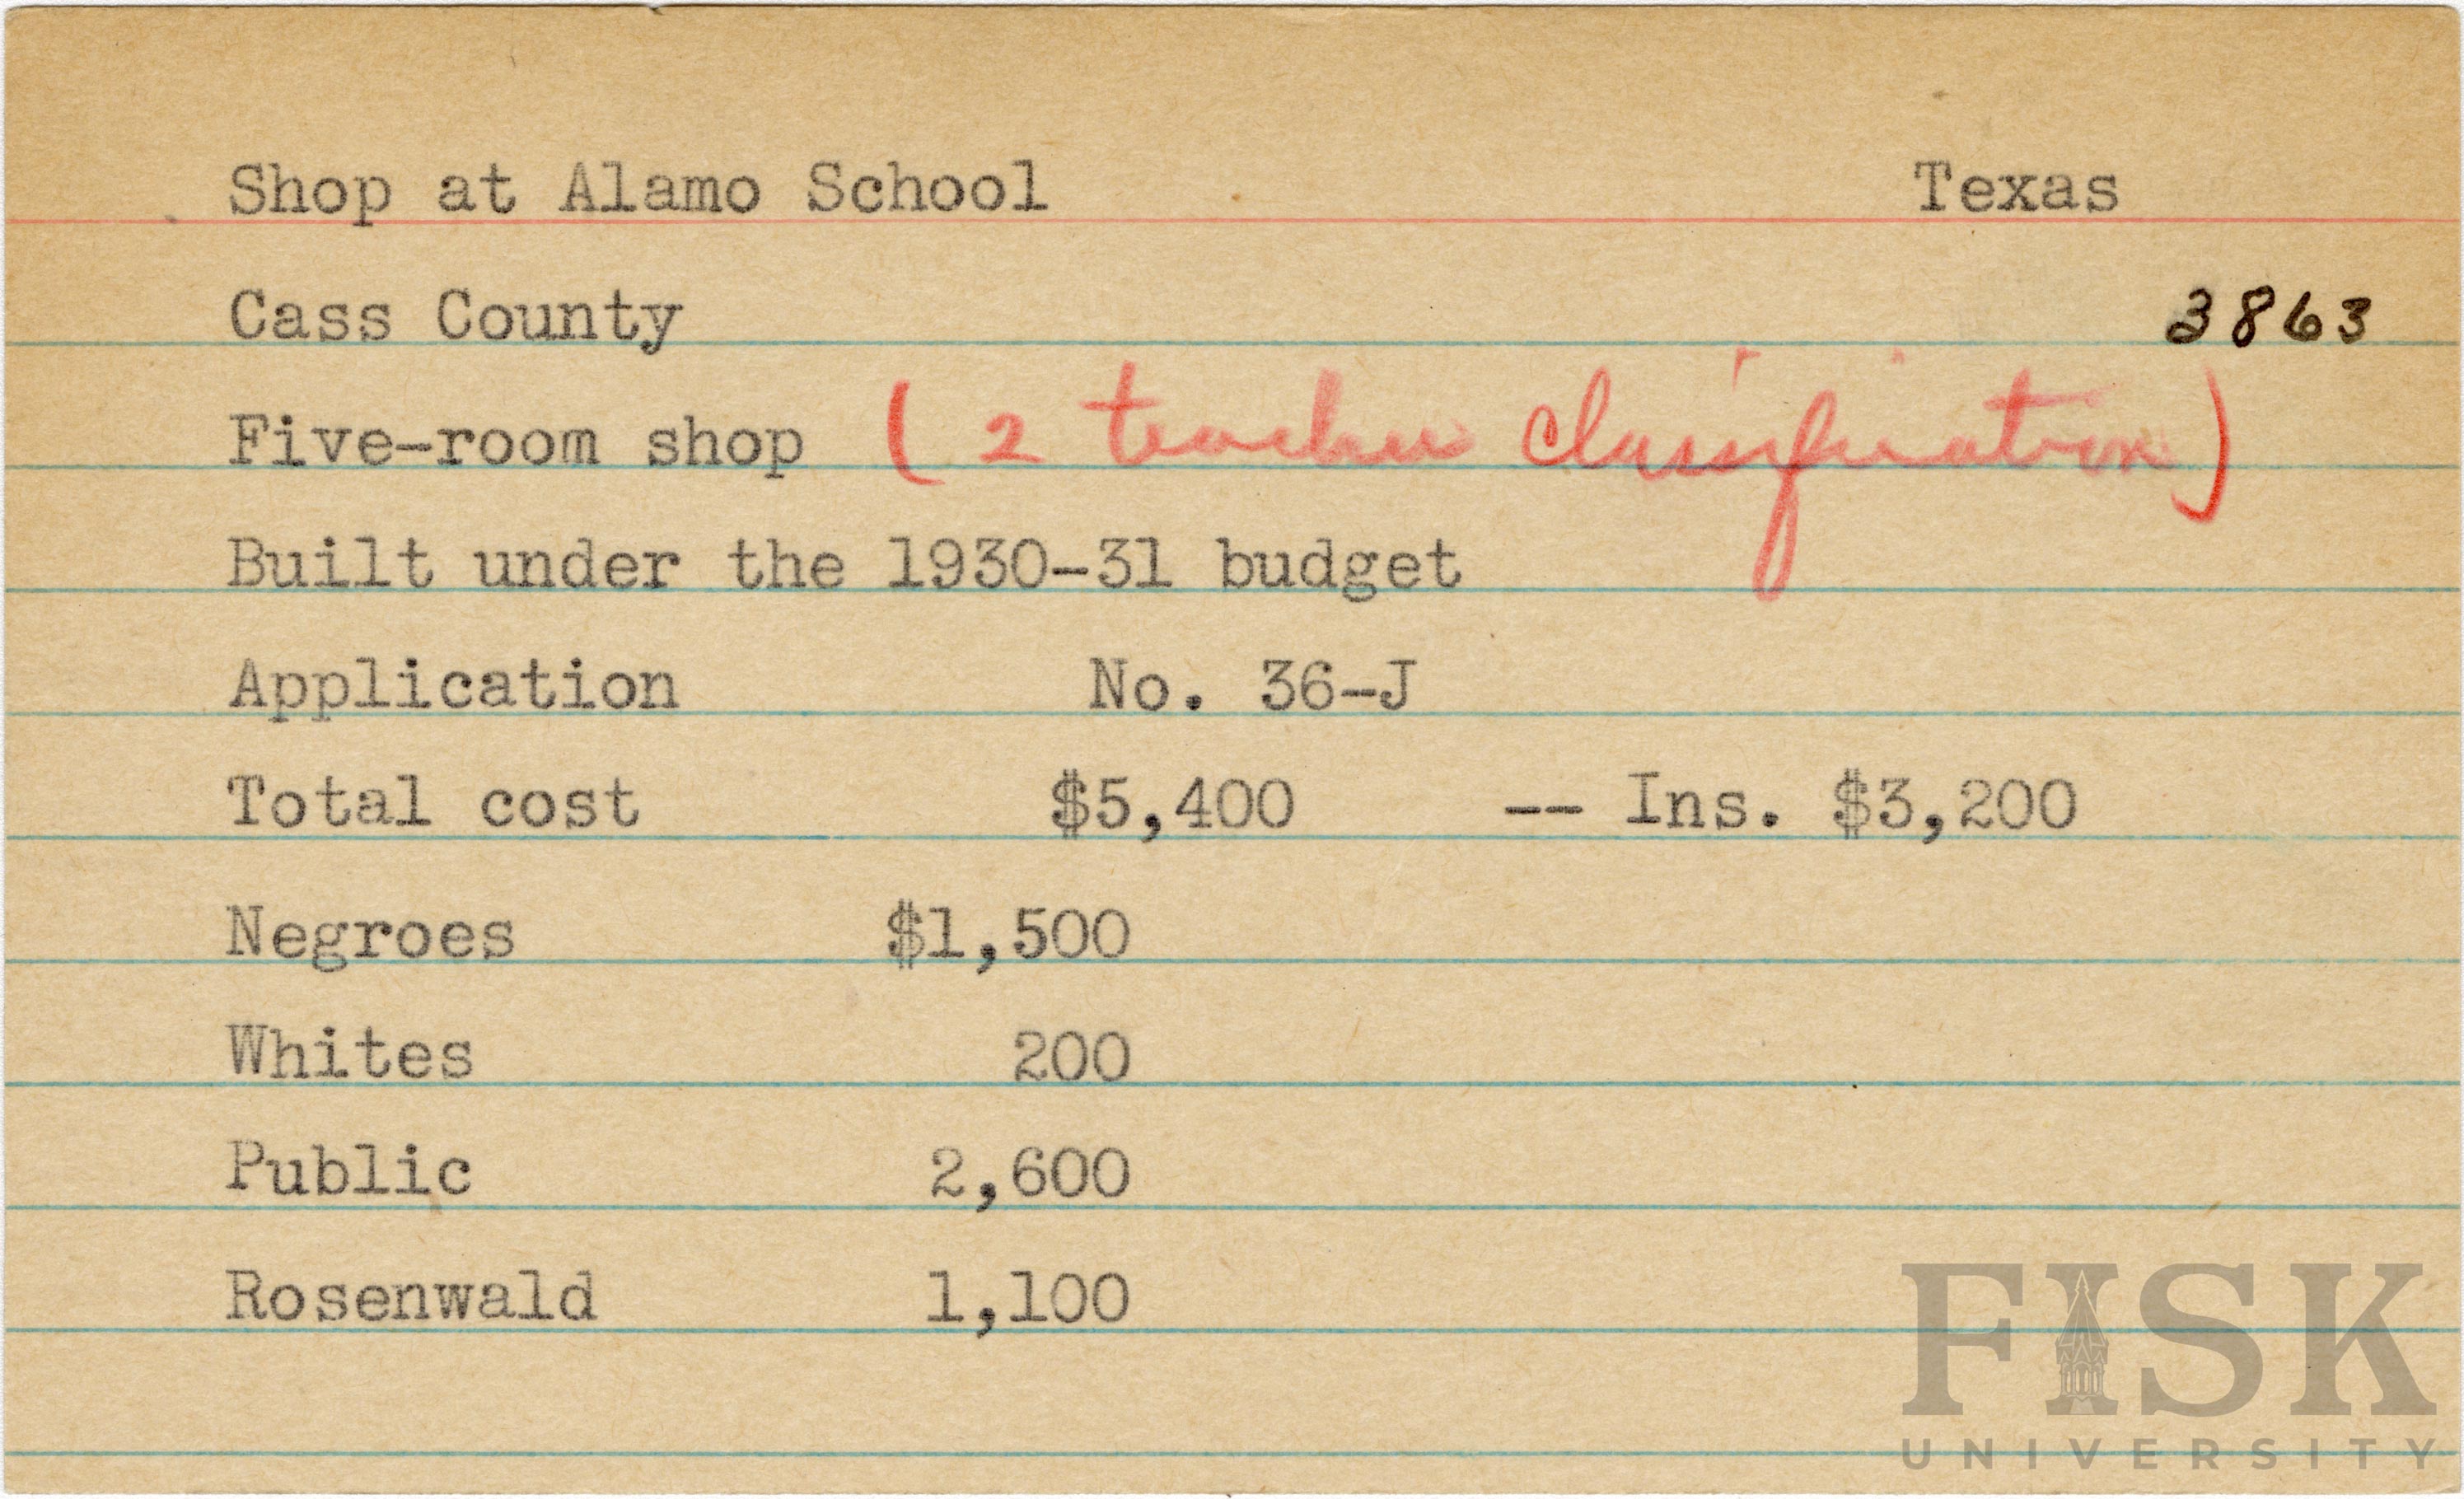 Shop at Alamo School Texas
Cass County 3863
Five-room shop (2 teacher classification)
Built under the 1930-31 budget
Application No. 36-J
Total cost $5,400 -- Ins. $3,200
Negroes $1,500
Whites 200
Public 2,600
Rosenwald 1,100
FISK
UNIVERSITY